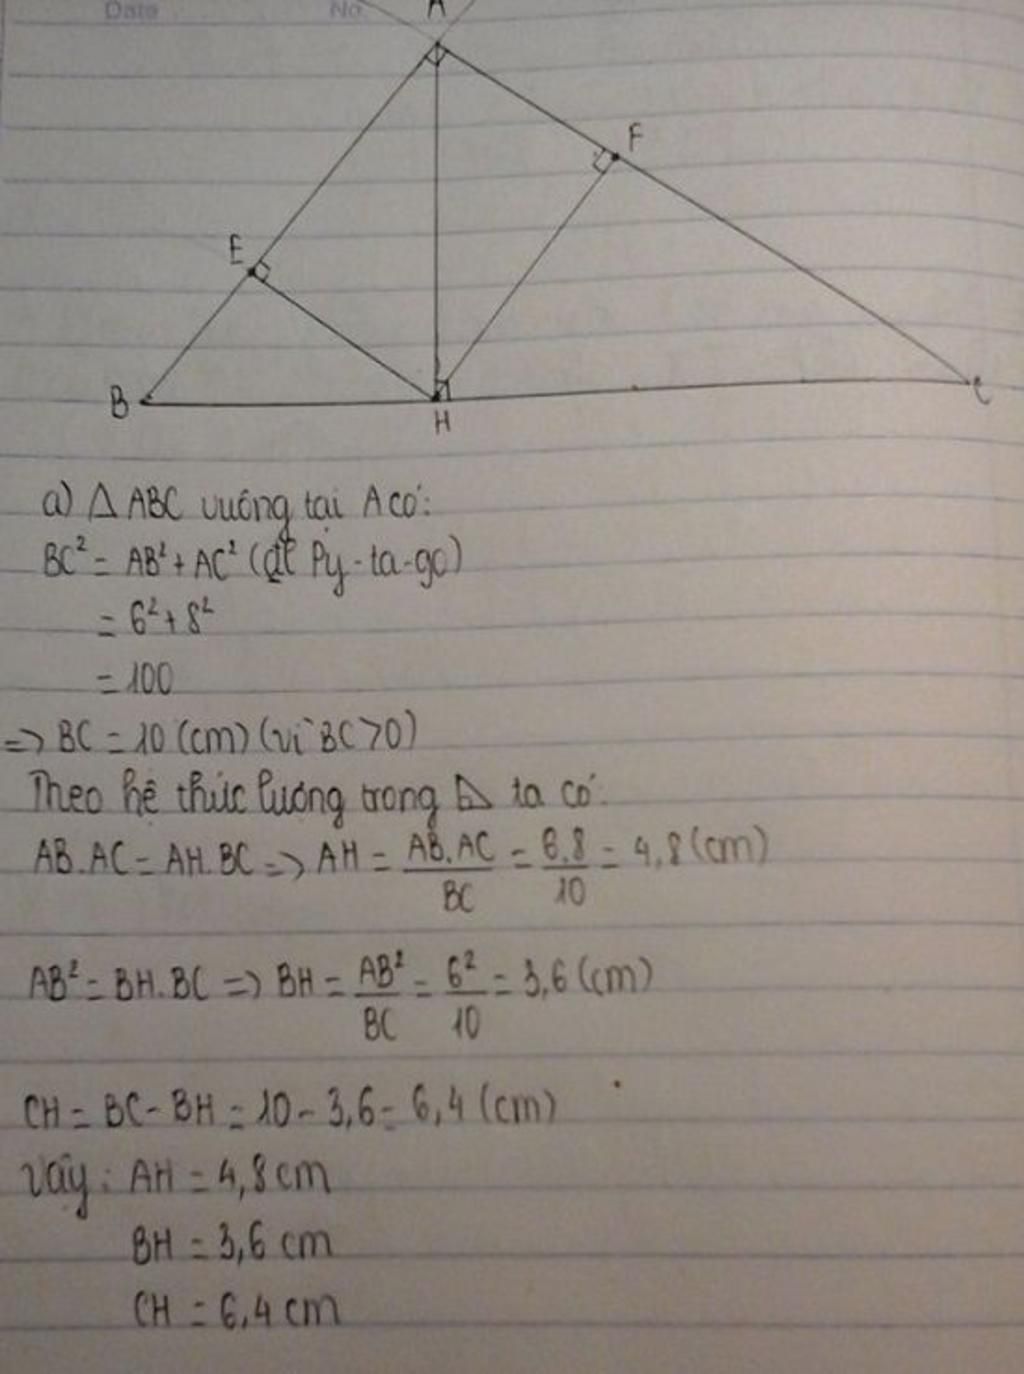 Date No.
A
F
E
B
H
C
a) △ ABC vuông tại A có:
BC² = AB² + AC² (đl Py-ta-go)
= 6² + 8²
= 100
=> BC = 10 (cm) (vì BC>0)
Theo hệ thức lượng trong ⊿ ta có:
AB.AC = AH.BC => AH = AB.AC/BC = 6.8/10 = 4,8 (cm)
AB² = BH.BC => BH = AB²/BC = 6²/10 = 3,6 (cm)
CH = BC - BH = 10 - 3,6 = 6,4 (cm)
Vậy: AH = 4,8 cm
BH = 3,6 cm
CH = 6,4 cm